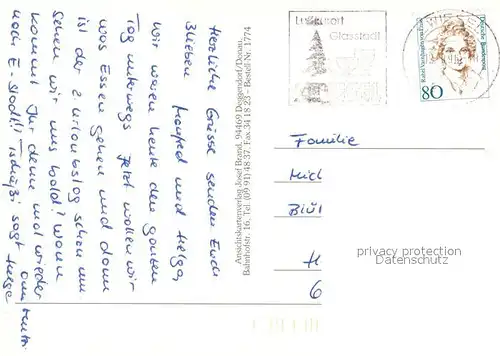 Herzliche Grüsse senden Euch
Blieben Manfred und Helga,
wir waren heute den ganzen
Tag unterwegs jetzt wollen wir
was Essen gehen und dann
ist der 2. Urlaubstag schon um
sehen wir uns bald? Wann
kommt Ihr denn mal wieder
nach E-Stadt! Tschüßi sagt Helga
Ansichtskartenverlag Josef Brand, 94469 Deggendorf/Donau,
Bahnhofstr. 16, Tel. (09 91) 48 37, Fax 34 18 23 – Bestell Nr. 1774
Luftkurort
Glasstadt
Deutsche Bundespost
Rahel Varnhagen von Ense
80
Familie
Mich
H
6
privacy protection
Datenschutz